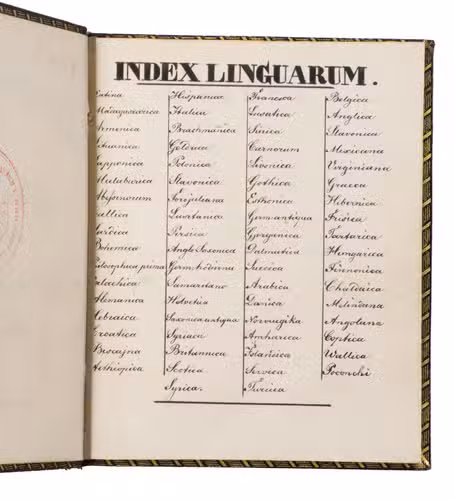 INDEX LINGUARUM.
Latina
Armenica
Japponica
Malabarica
Gallica
Sardica
Bohemica
Valachica
Alemanica
Hebraica
Croatica
Biscajna
Aethiopica
Hispanica
Italica
Brachmanica
Geldrica
Polonica
Slavonica
Forojuliana
Lusitanica
Persica
Anglo Saxonica
Samaritano
Helvetica
Saxonica antiqua
Syriaca
Britannica
Scotica
Syrica.
Francica
Lusatica
Sinica
Carnorum
Livonica
Gothica
Esthonica
Germ antiqua
Georgianica
Dalmatica
Suecica
Arabica
Danica
Norwegika
Amharica
Islandica
Servica
Turcica
Belgica
Anglica
Slavonica
Mexicana
Virginiana
Graeca
Hibernica
Frisica
Tartarica
Hungarica
Finnonica
Chaldaica
Melindana
Angolana
Coptica
Wallica
Poconchi